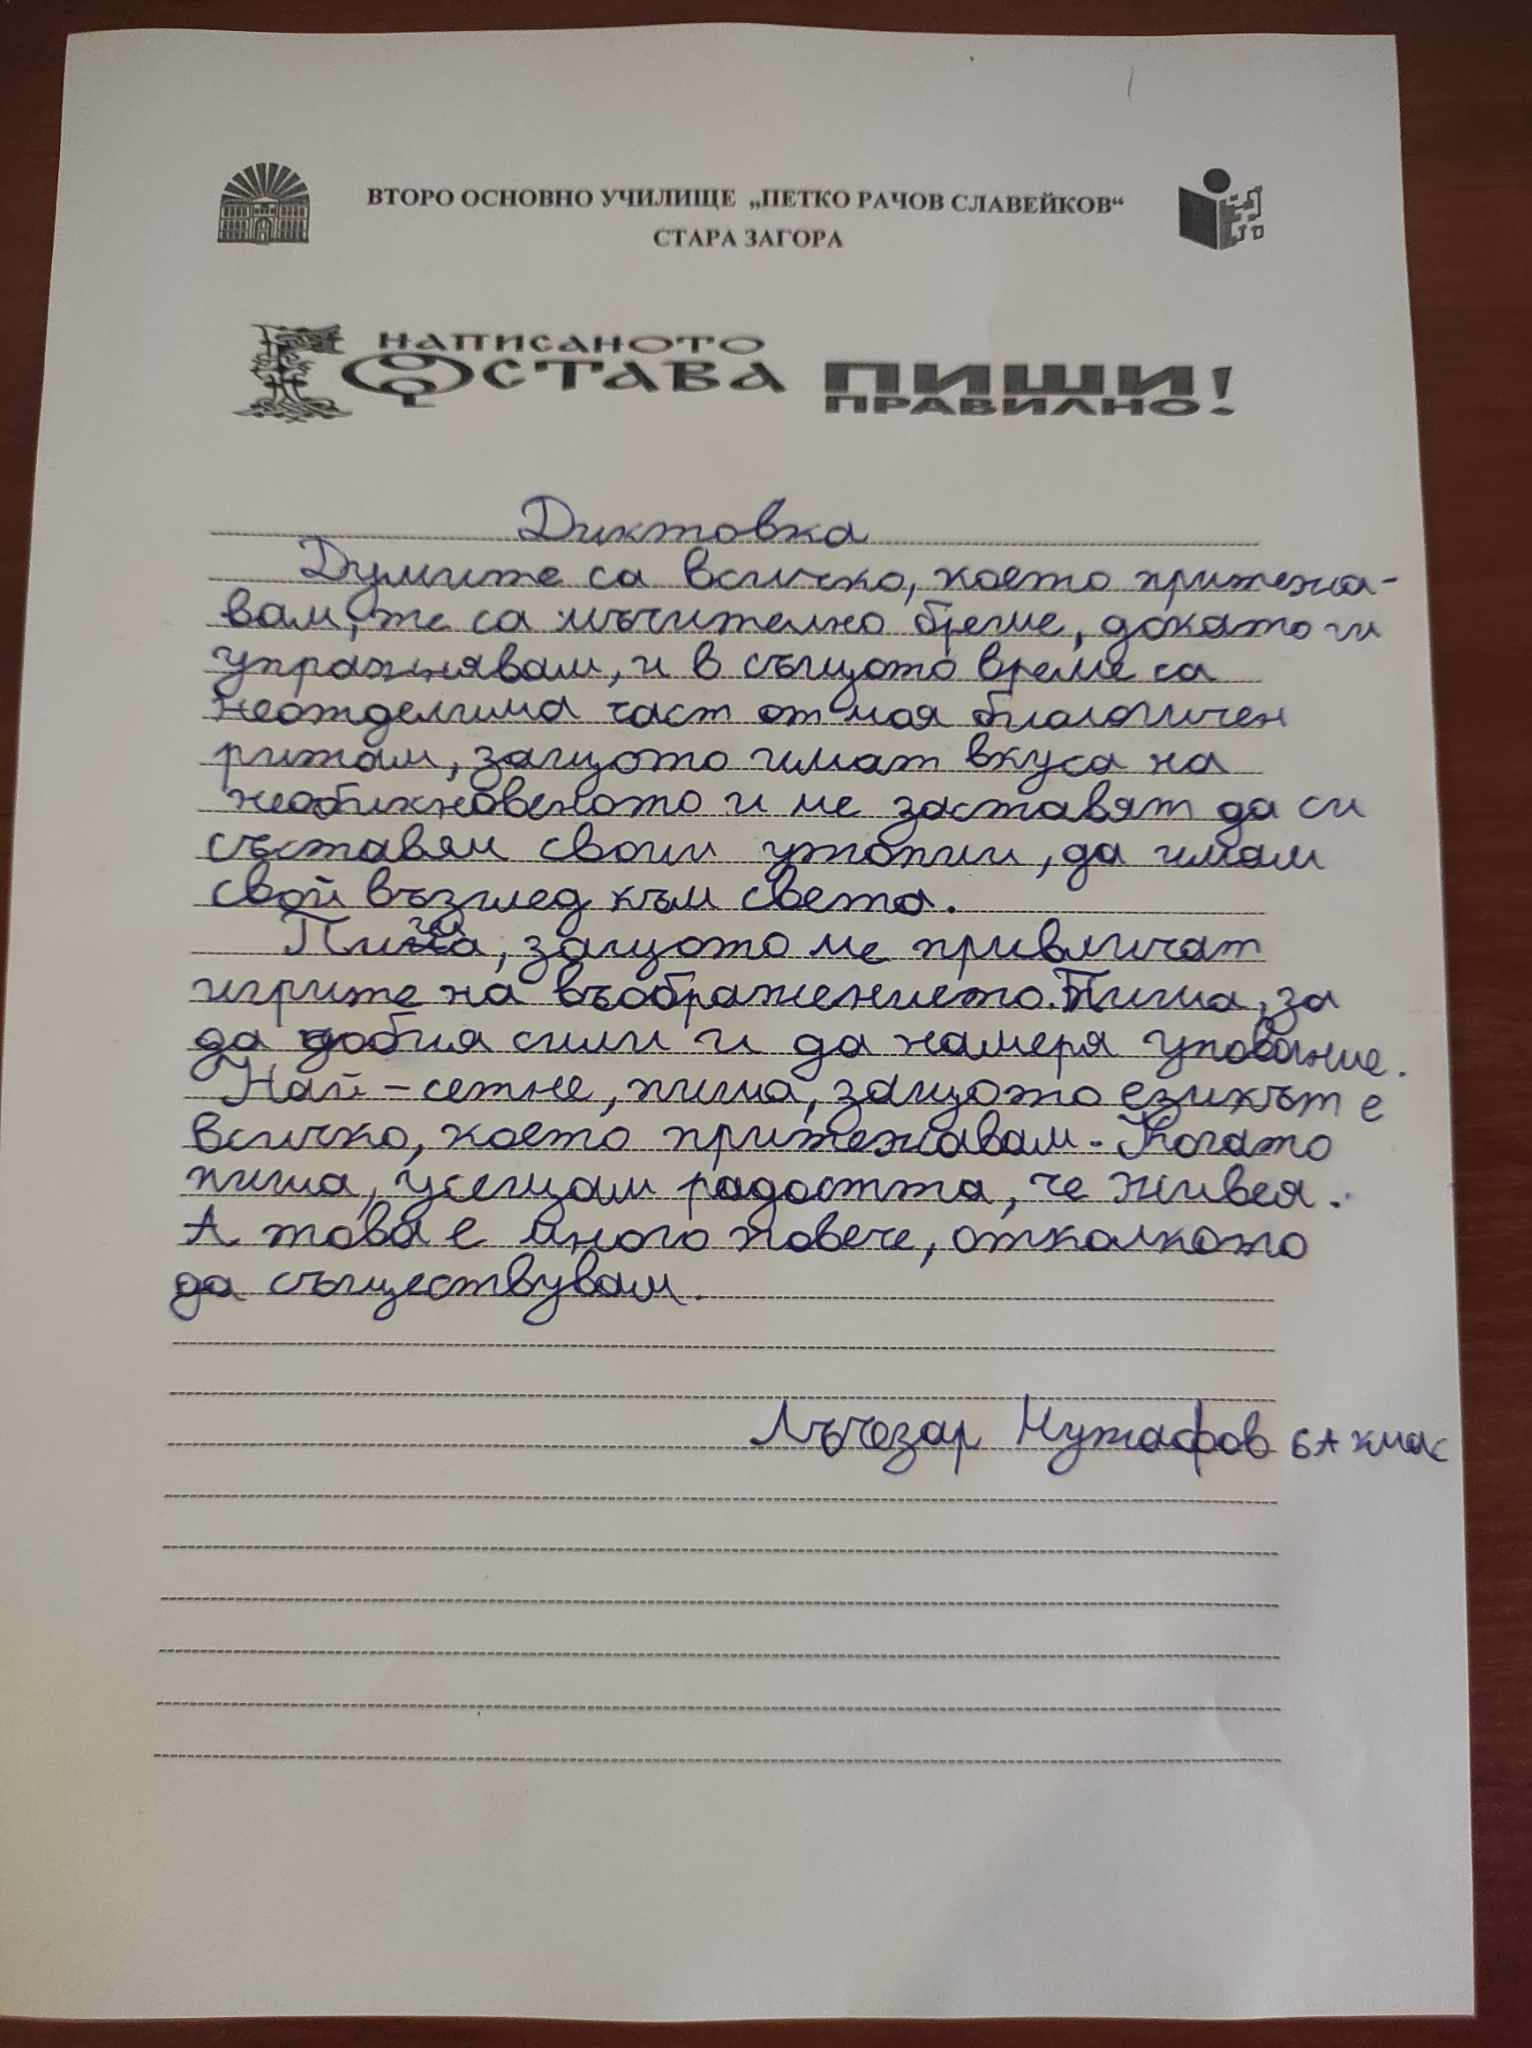 ВТОРО ОСНОВНО УЧИЛИЩЕ „ПЕТКО РАЧОВ СЛАВЕЙКОВ“
СТАРА ЗАГОРА
НАПИСАНОТО
ОСТАВА
ПИШИ
ПРАВИЛНО!
Диктовка
Думите са всичко, което притежа-
вам, те са мъчително бреме, докато ги
упражнявам, и в същото време са
неотделима част от моя биологичен
ритъм, защото имат вкуса на
необикновеното и ме заставят да си
съставям свои утопии, да имам
свой възглед към света.
Пиша, защото ме привличат
игрите на въображението. Пиша, за
да добия сили и да намеря упование.
Най-сетне, пиша, защото езикът е
всичко, което притежавам. Когато
пиша, усещам радостта, че живея.
А това е много повече, отколкото
да съществувам.
Лъчезар Мутафов 6А клас